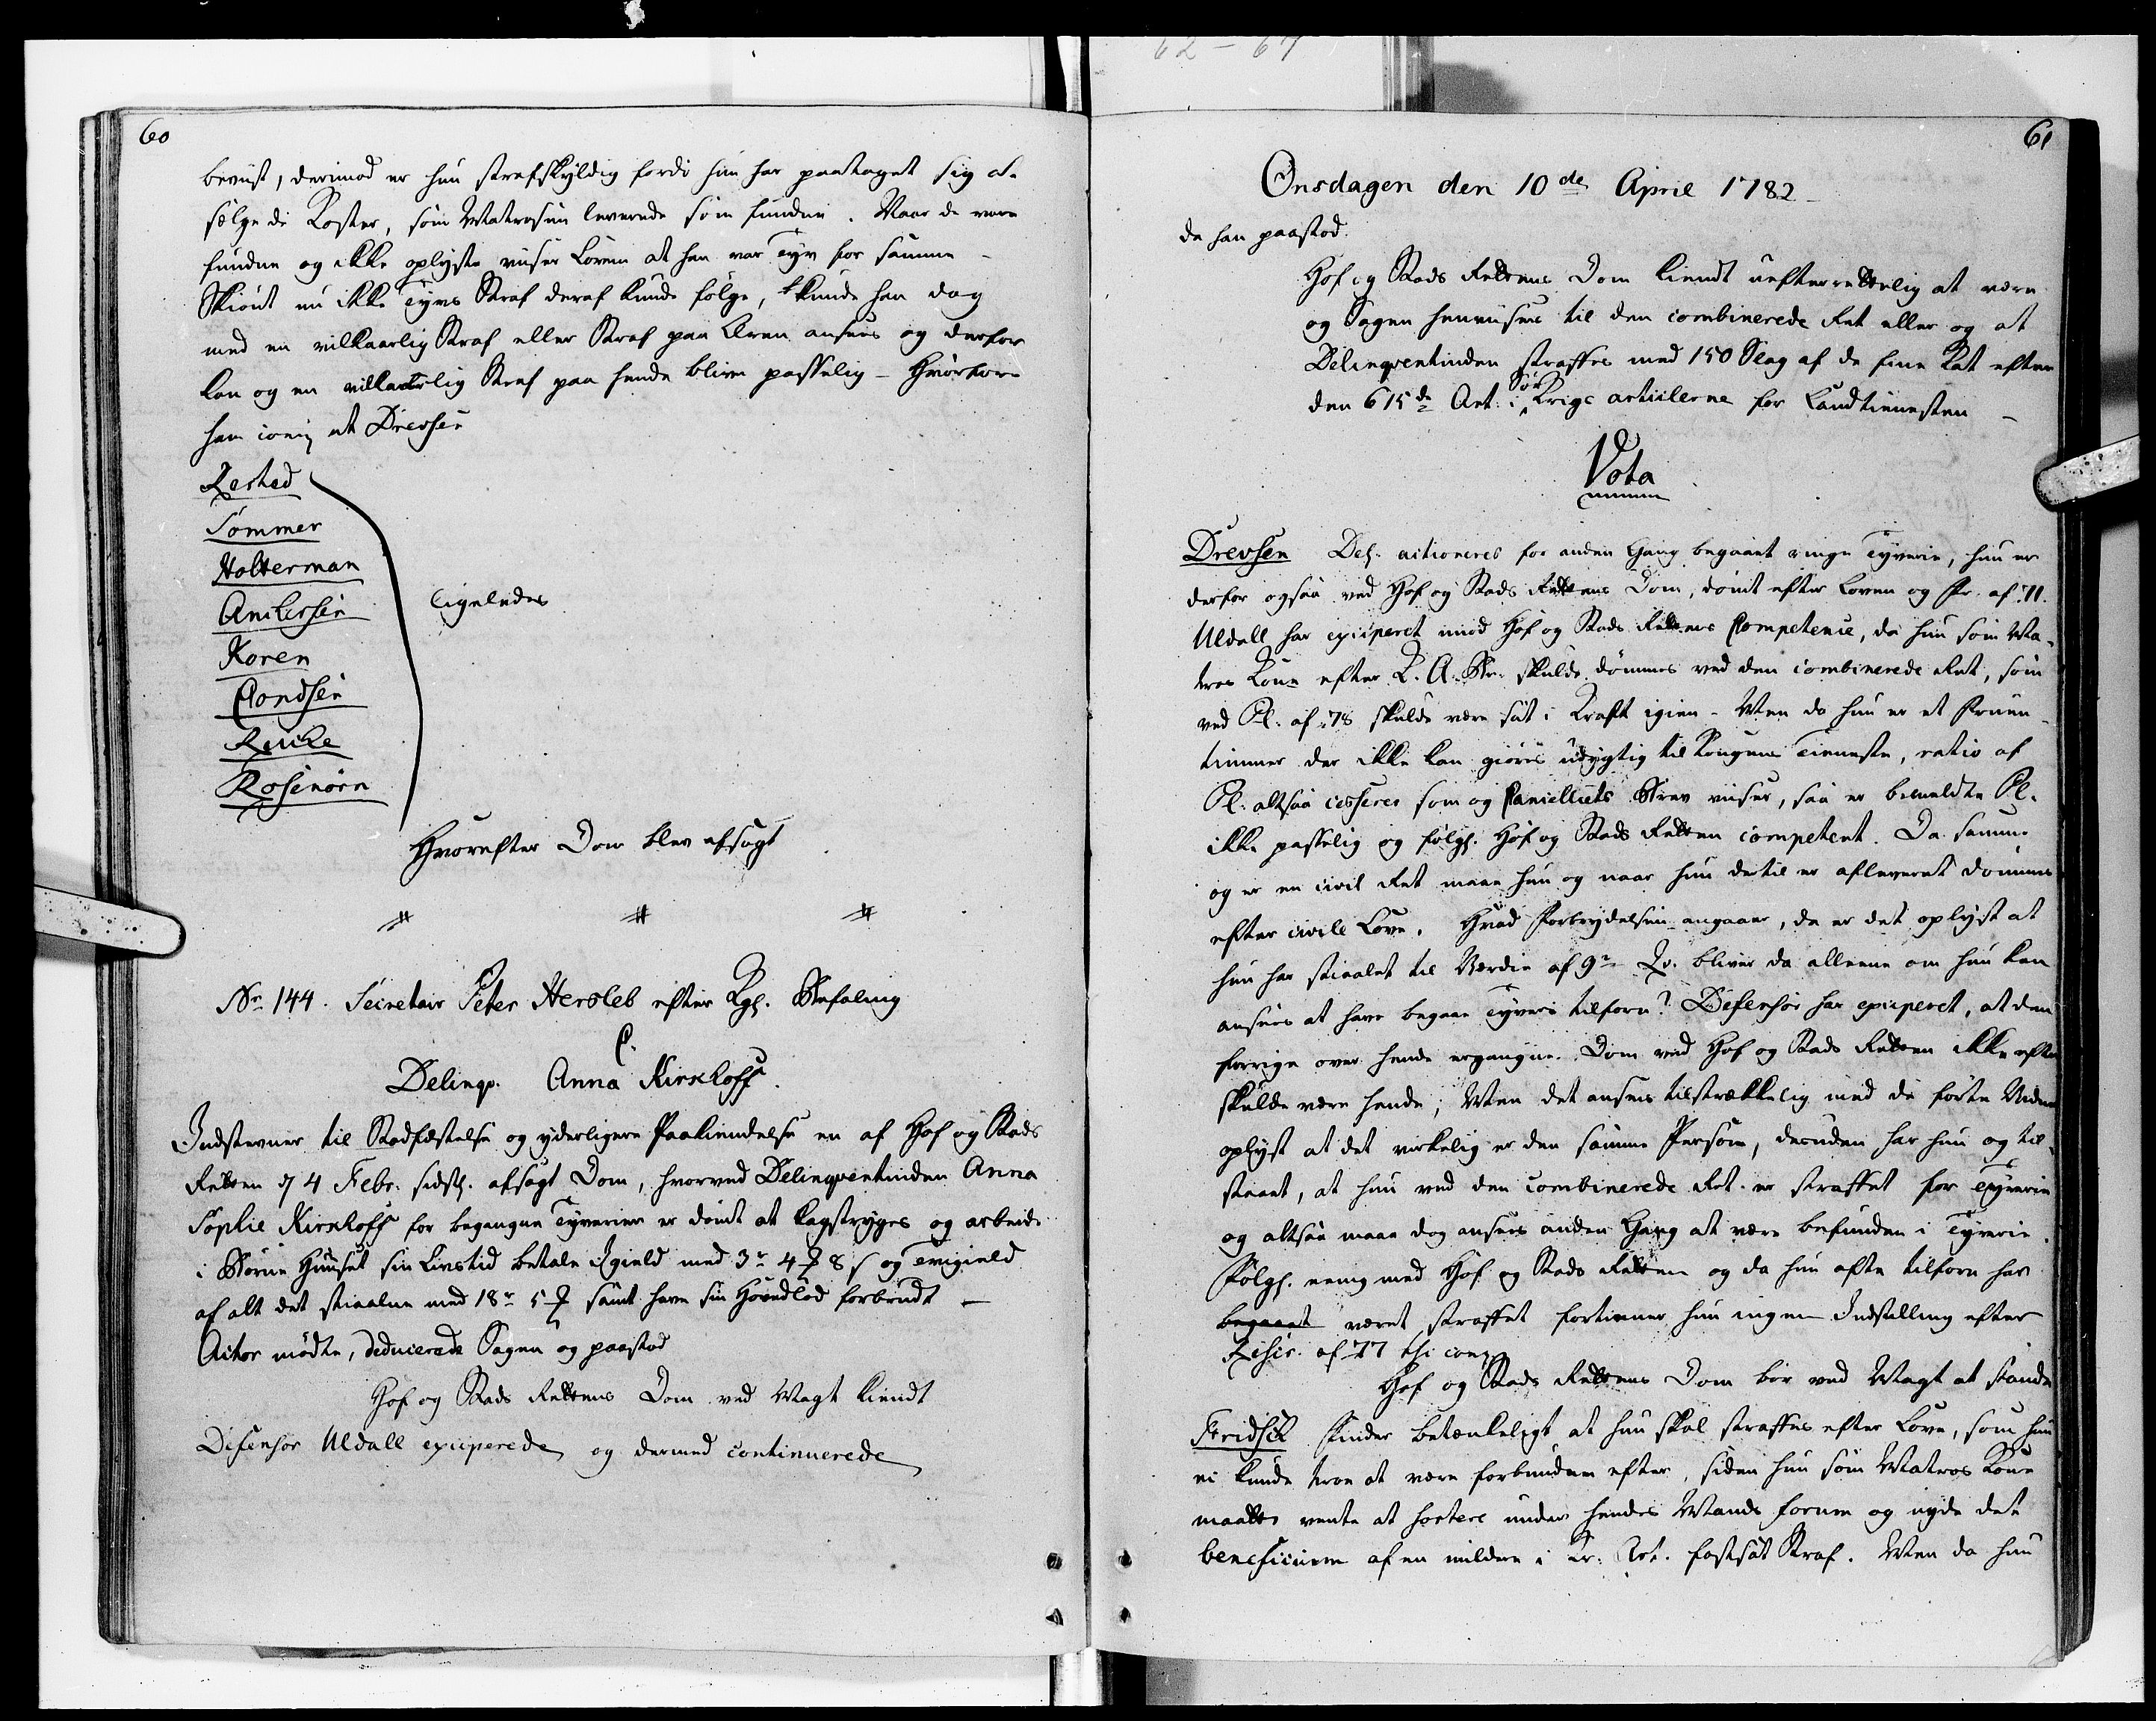 60
beviist, derimod er hun strafskyldig fordi hun har paataget sig at
sælge de Koster, som Matrosen leverede som funden. Naar de vare
fundne og ikke oplyste viiser Loven at han var Tyv for samme -
Skiønt nu ikke Tyvs Straf deraf kunde følge, kunde han dog
med en vilkaarlig Straf eller Straf paa Æren ansees og derfor
kan og en vilkaarlig Straf paa hende blive passelig - Hvorfor
han eenig at Drevsen
Lested
Sommer
Holterman
Anchersen
Koren
Aondsen
Reiche
Rosenørn
ligeledes
Hvorefter Dom blev afsagt
Nr 144. Secretair Peter Hersleb efter Kgl. Befaling
C.
Delinqv. Anna Kirchhoff.
Indstevner til Stadfæstelse og yderligere Paakiendelse en af Hof og Stads
Retten d 4 Febr. sidstl. afsagt Dom, hvorved Delinqventinden Anna
Sophie Kirchhoff for begangne Tyverier er dømt at kagstryges og arbeide
i Børne Huuset sin Livstid betale Igield med 3r 4 8 s og Tvigield
af alt det stiaalne med 18r 5 samt have sin Hovedlod forbrudt -
Actor mødte, deducerede Sagen og paastod
Hof og Stads Rettens Dom ved Magt kiendt
Defensor Uldall exciperede og dermed continuerede
61
Onsdagen den 10de April 1782
da han paastod.
Hof og Stads Rettens Dom kiendt uefterrettelig at være
og Sagen henviises til den combinerede Ret eller og at
Delinqventinden straffes med 150 Slag af de fine Kat efter
den 615de Art: i Søe Krigs articlerne for Landtienesten -
Vota
Drevsen Del. actioneres for anden Gang begaaet ringe Tyverie, hun er
derfor ogsaa ved Hof og Stads Rettens Dom, dømt efter Loven og Fr. af 71.
Uldall har exciperet imod Hof og Stads Rettens Competence, da hun som Ma-
tros Kone efter K. A. Br. skulde dømmes ved den combinerede Ret, som
ved Pl. af 78 skulde være sat i Kraft igien - Men da hun er et Fruen-
timmer der ikke kan giøres udygtig til Kongens Tieneste, ratio af
Pl. altsaa cesserer som og Cancelliets Brev viiser, saa er bemeldte Pl.
ikke passelig og følgl. Hof og Stads Retten competent. Da samme
og er en civil Ret maae hun og naar hun dertil er afleveret dømmes
efter civile Love. Hvad Forbrydelsen angaaer, da er det oplyst at
hun har stiaalet til Værdie af 9r Qv. bliver da alleene om hun kan
ansees at have begaaet Tyverie tilforn? Defensor har exciperet, at den
forrige over hende ergangne Dom ved Hof og Stads Retten ikke
skulde være hende; Men det ansees tilstrækkelig med de førte Vidner
oplyst at det virkelig er den samme Person, desuden har hun og til-
staaet, at hun ved den combinerede Ret er straffet for Tyverie
og altsaa maae dog ansees anden Gang at være befunden i Tyverie.
Følgl. eenig med Hof og Stads Retten og da hun ofte tilforn har
begaaet været straffet fortiener hun ingen Indstilling efter
Rescr. af 77 thi cenz
Hof og Stads Rettens Dom bør ved Magt at stande
Fridsch finder betænkeligt at hun skal straffes efter Love, som hun
ei kunde troe at være forbunden efter, siden hun som Matros Kone
maatte vente at sortere under hendes Mands forum og nyde det
beneficium af en mildere i Kr. Art. fastsat Straf. Men da hun